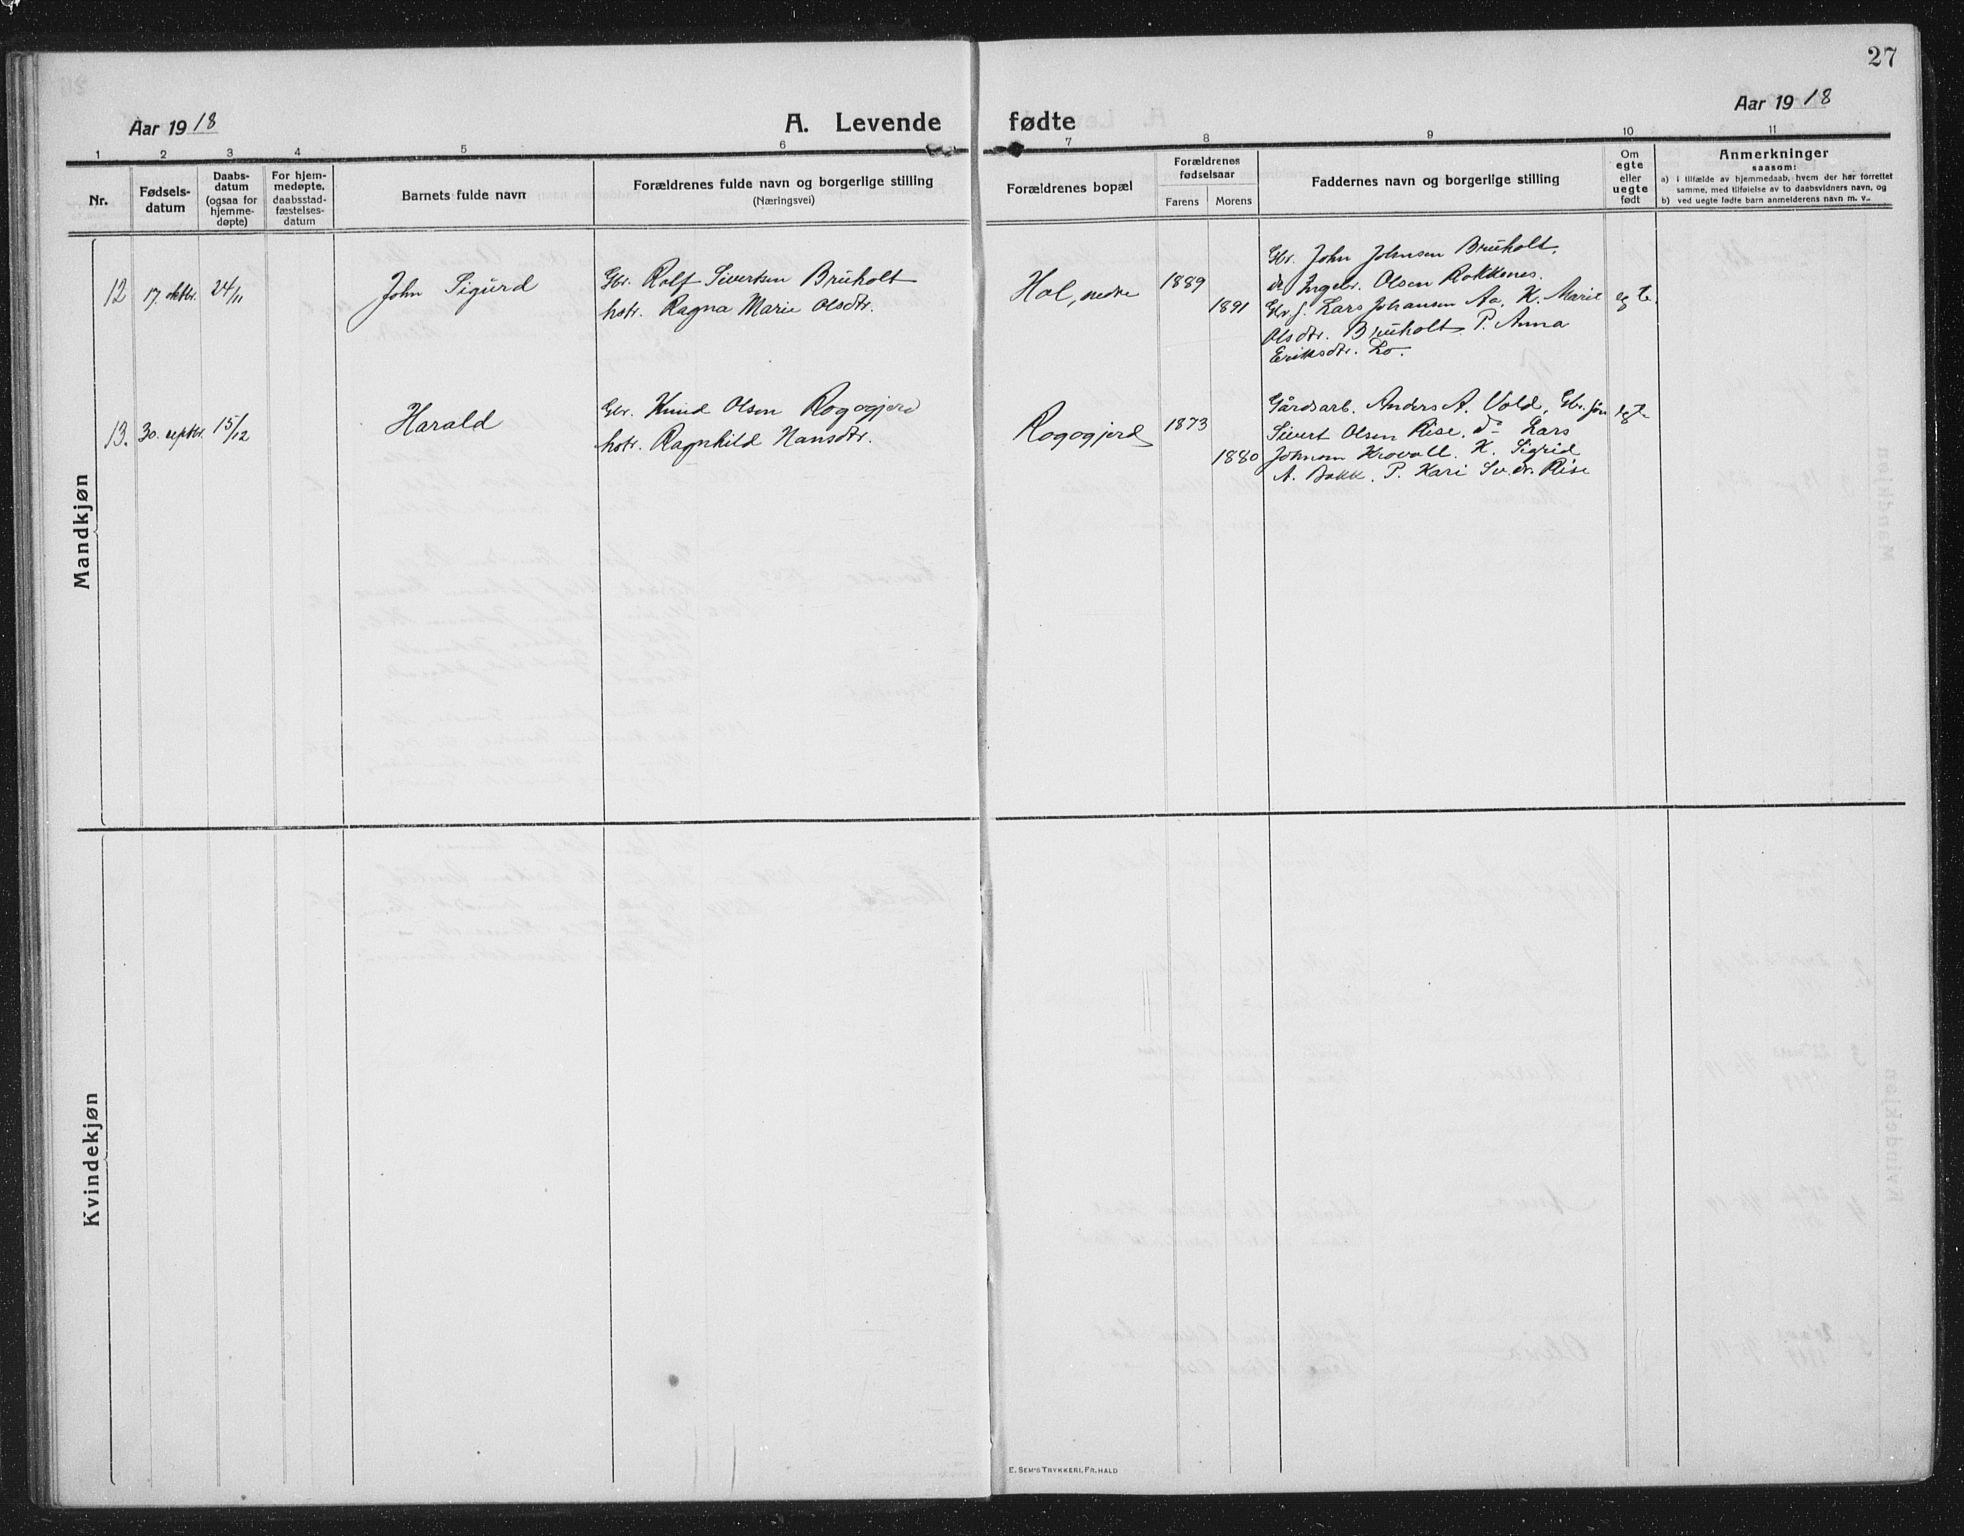 27
Aar 1918
A. Levende
fødte
Aar 1918
1 2 3 4 5 6 7 8 9 10 11
Nr.
Fødsels-
datum
Daabs-
datum
(ogsaa for
hjemme-
døpte)
For hjem-
medøpte,
daabsstad-
fæstelses-
datum
Barnets fulde navn
Forældrenes fulde navn og borgerlige stilling
(Næringsvei)
Forældrenes bopæl
Forældrenes
fødselsaar
Farens Morens
Faddernes navn og borgerlige stilling
Om
egte
eller
uegte
født
Anmerkninger
saasom:
a) i tilfælde av hjemmedaab, hvem der hår forrettet
samme, med tilføielse av to daabsvidners navn, og
b) ved uegte fødte barn anmelderens navn m. v..
Mandkjøn
12
17. oktbr.
24/11
John Sigurd
Gbr. Rolf Sivertsen Bruholt
hstr. Ragna Marie Olsdtr.
Hol, nedre
1889
1891
Gbr. John Johnsen Bruholt,
do Ingebr. Olsen Rokkones.
Gbr. s. Lars Johansen Aa, K. Marie
Olsdtr. Bruholt, P. Anna
Eriksdtr. Lo.
egte.
13.
30. septbr.
15/12
Harald
Gbr. Knud Olsen Rogogjerd
hstr. Ragnhild Hansdtr.
Rogogjerd
1873
1880
Gårdsarb. Anders A. Vold, Gbr. søn
Sivert Olsen Rise, do Lars
Johnsen Krovoll. K. Sigrid
A. Bakk, P. Kari Sv.dr. Rise
egte
Kvindekjøn
E. SEM'S TRYKKERI, FR. HALD